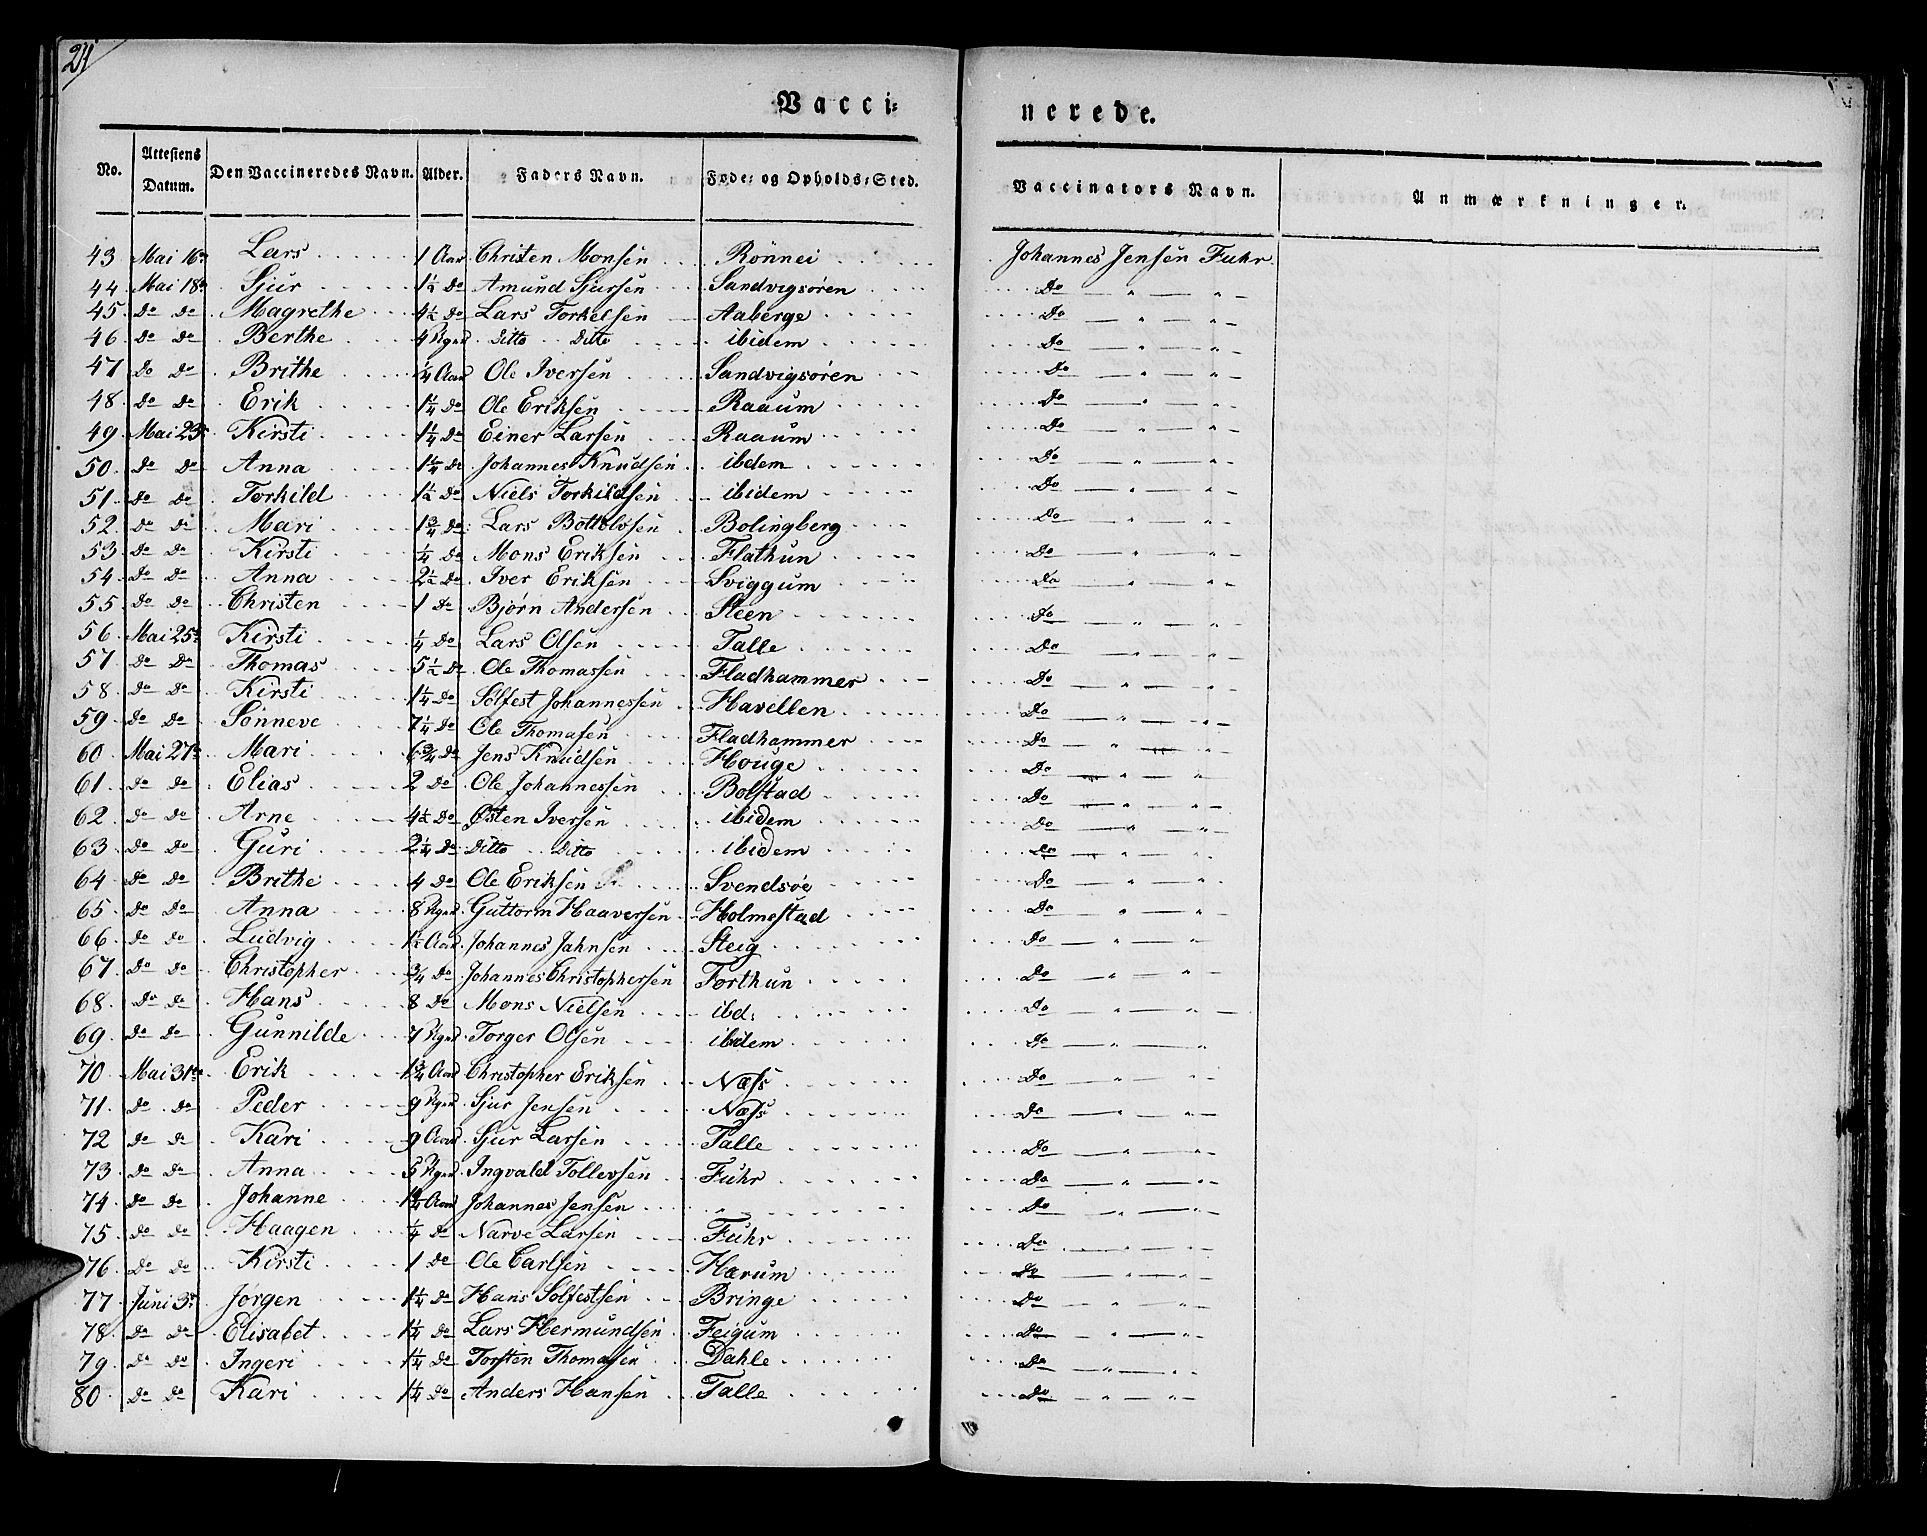 24
Vacci-
nerede.
No. Attestens Datum. Den Vaccineredes Navn. Alder. Faders Navn. Føde- og Opholds-Sted. Vaccinators Navn. Anmærkninger.
43 Mai 16de Lars 1 Aar Christen Monsen Rönnei Johannes Jensen Fuhr
44 Mai 18de Sjur 1½ Do Amund Sjursen Sandvigsören Do — " — " —
45 Do Do Magrethe 4½ Do Lars Torkelsen Aaberge Do — " — " —
46 Do Do Berthe 4 Ditto Ditto ibidem Do — " — " —
47 Do Do Brithe ¼ Aar Ole Iversen Sandvigsören Do — " — " —
48 Do Do Erik 1¼ Do Ole Eriksen Raaum Do — " — " —
49 Mai 23 Kirsti 1¼ Do Einer Larsen Raaum Do — " — " —
50 Do Do Anna 1¼ Do Johannes Knudsen ibdem Do — " — " —
51 Do Do Torkild 1½ Do Niels Torkildsen ibidem Do — " — " —
52 Do Do Mari 1¾ Do Lars Bottolvsen Bolingberg Do — " — " —
53 Do Do Kirsti ¼ Do Mons Eriksen Flathun Do — " — " —
54 Do Do Anna 2½ Do Iver Eriksen Sviggum Do — " — " —
55 Do Do Christen 1 Do Bjørn Andersen Steen Do — " — " —
56 Mai 25 Kirsti ¼ Do Lars Olsen Talle Do — " — " —
57 Do Do Thomas 5½ Do Ole Thomassen Fladhammer Do — " — " —
58 Do Do Kirsti 1¼ Do Solfest Johannessen Havellen Do — " — " —
59 Do Do Sönneve 7¼ Do Ole Thomasen Fladhammer Do — " — " —
60 Mai 27de Mari 6¾ Do Jens Knudsen Houge Do — " — " —
61 Do Do Elias 2 Do Ole Johannessen Bolstad Do — " — " —
62 Do Do Arne 4½ Do Østen Iversen ibidem Do — " — " —
63 Do Do Guri 2¼ Do Ditto Ditto ibidem Do — " — " —
64 Do Do Brithe 4 Do Ole Eriksen Svendsøe Do — " — " —
65 Do Do Anna 8 Guttorm Haaversen Holmestad Do — " — " —
66 Do Do Ludvig 1½ Aar Johannes Jahnsen Steig Do — " — " —
67 Do Do Christopher ¾ Do Johannes Christophersen Forthun Do — " — " —
68 Do Do Hans 8 Do Mons Nielsen ibd: Do — " — " —
69 Do Do Gunnilde 7 Torger Olsen ibidem Do — " — " —
70 Mai 31te Erik 1¾ Aar Christopher Eriksen Næss Do — " — " —
71 Do Do Peder 9 Sjur Jensen Næss Do — " — " —
72 Do Do Kari 9 Aar Sjur Larsen Talle Do — " — " —
73 Do Do Anna 5 Ingvald Tollevsen Fuhr Do — " — " —
74 Do Do Johanne Aar Johannes Jensen " Do — " — " —
75 Do Do Haagen ¼ Do Narve Larsen Fuhr Do — " — " —
76 Do Do Kirsti 1 Do Ole Carlsen Hærum Do — " — " —
77 Juni 3 Jørgen 1¼ Do Hans Solfestsen Bringe Do — " — " —
78 Do Do Elisabet 1¼ Do Lars Hermundsen Feigum Do — " — " —
79 Do Do Ingeri 1¼ Do Torsten Thomasen Dahle Do — " — " —
80 Do Do Kari 1¼ Do Anders Hansen Talle Do — " — " —